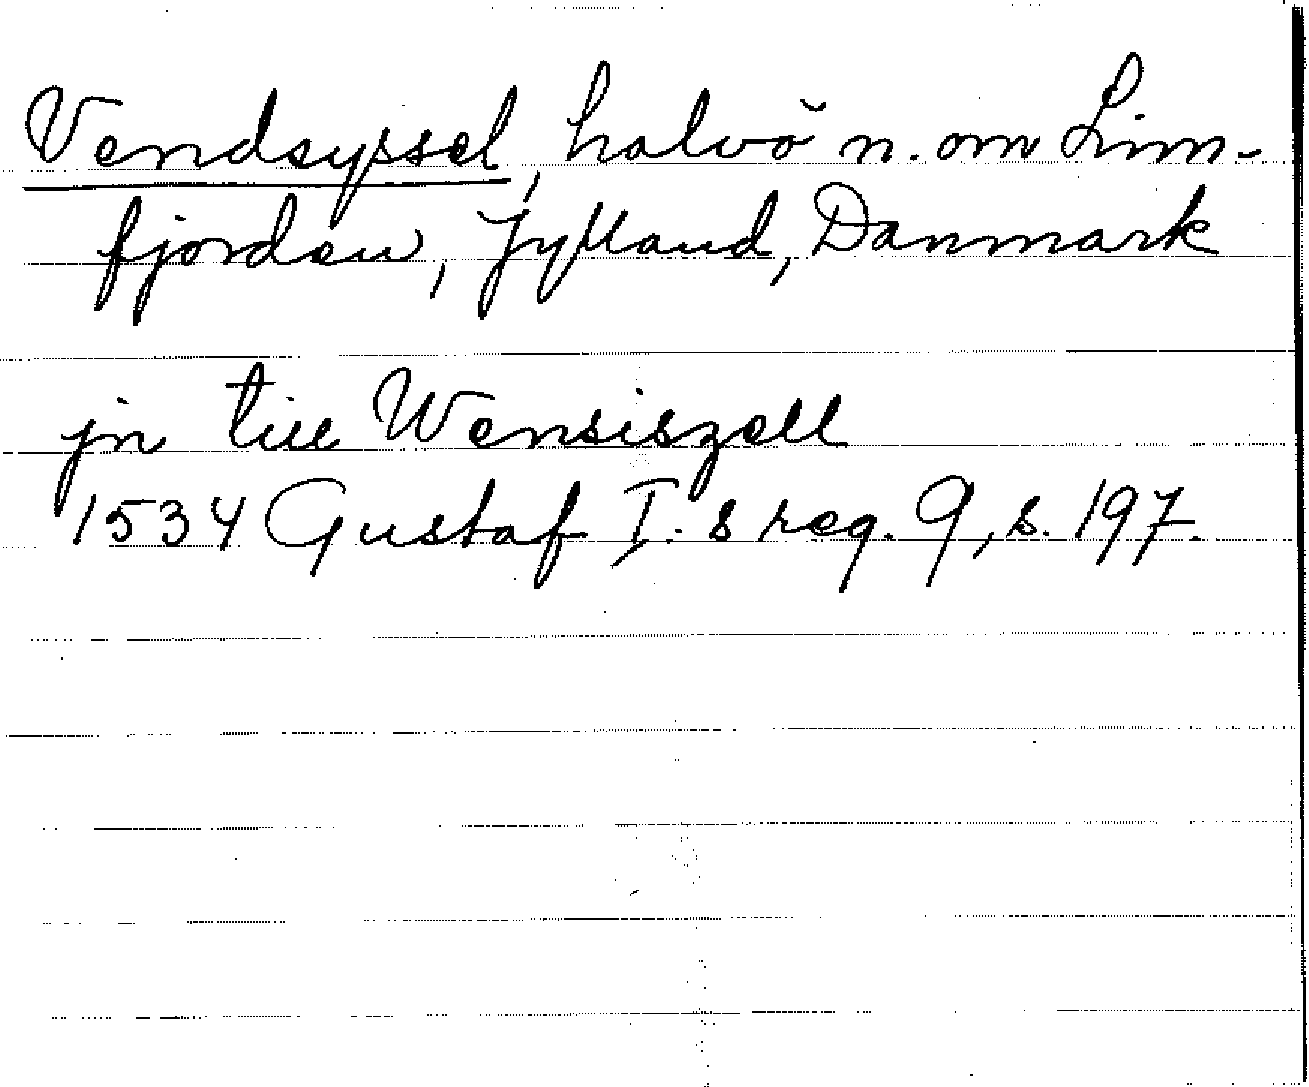 Vendsyssel, halvö n. om Lim-
fjorden, Jylland, Danmark
jn till Wensiszell
1534 Gustaf I:s reg. 9, s. 197.